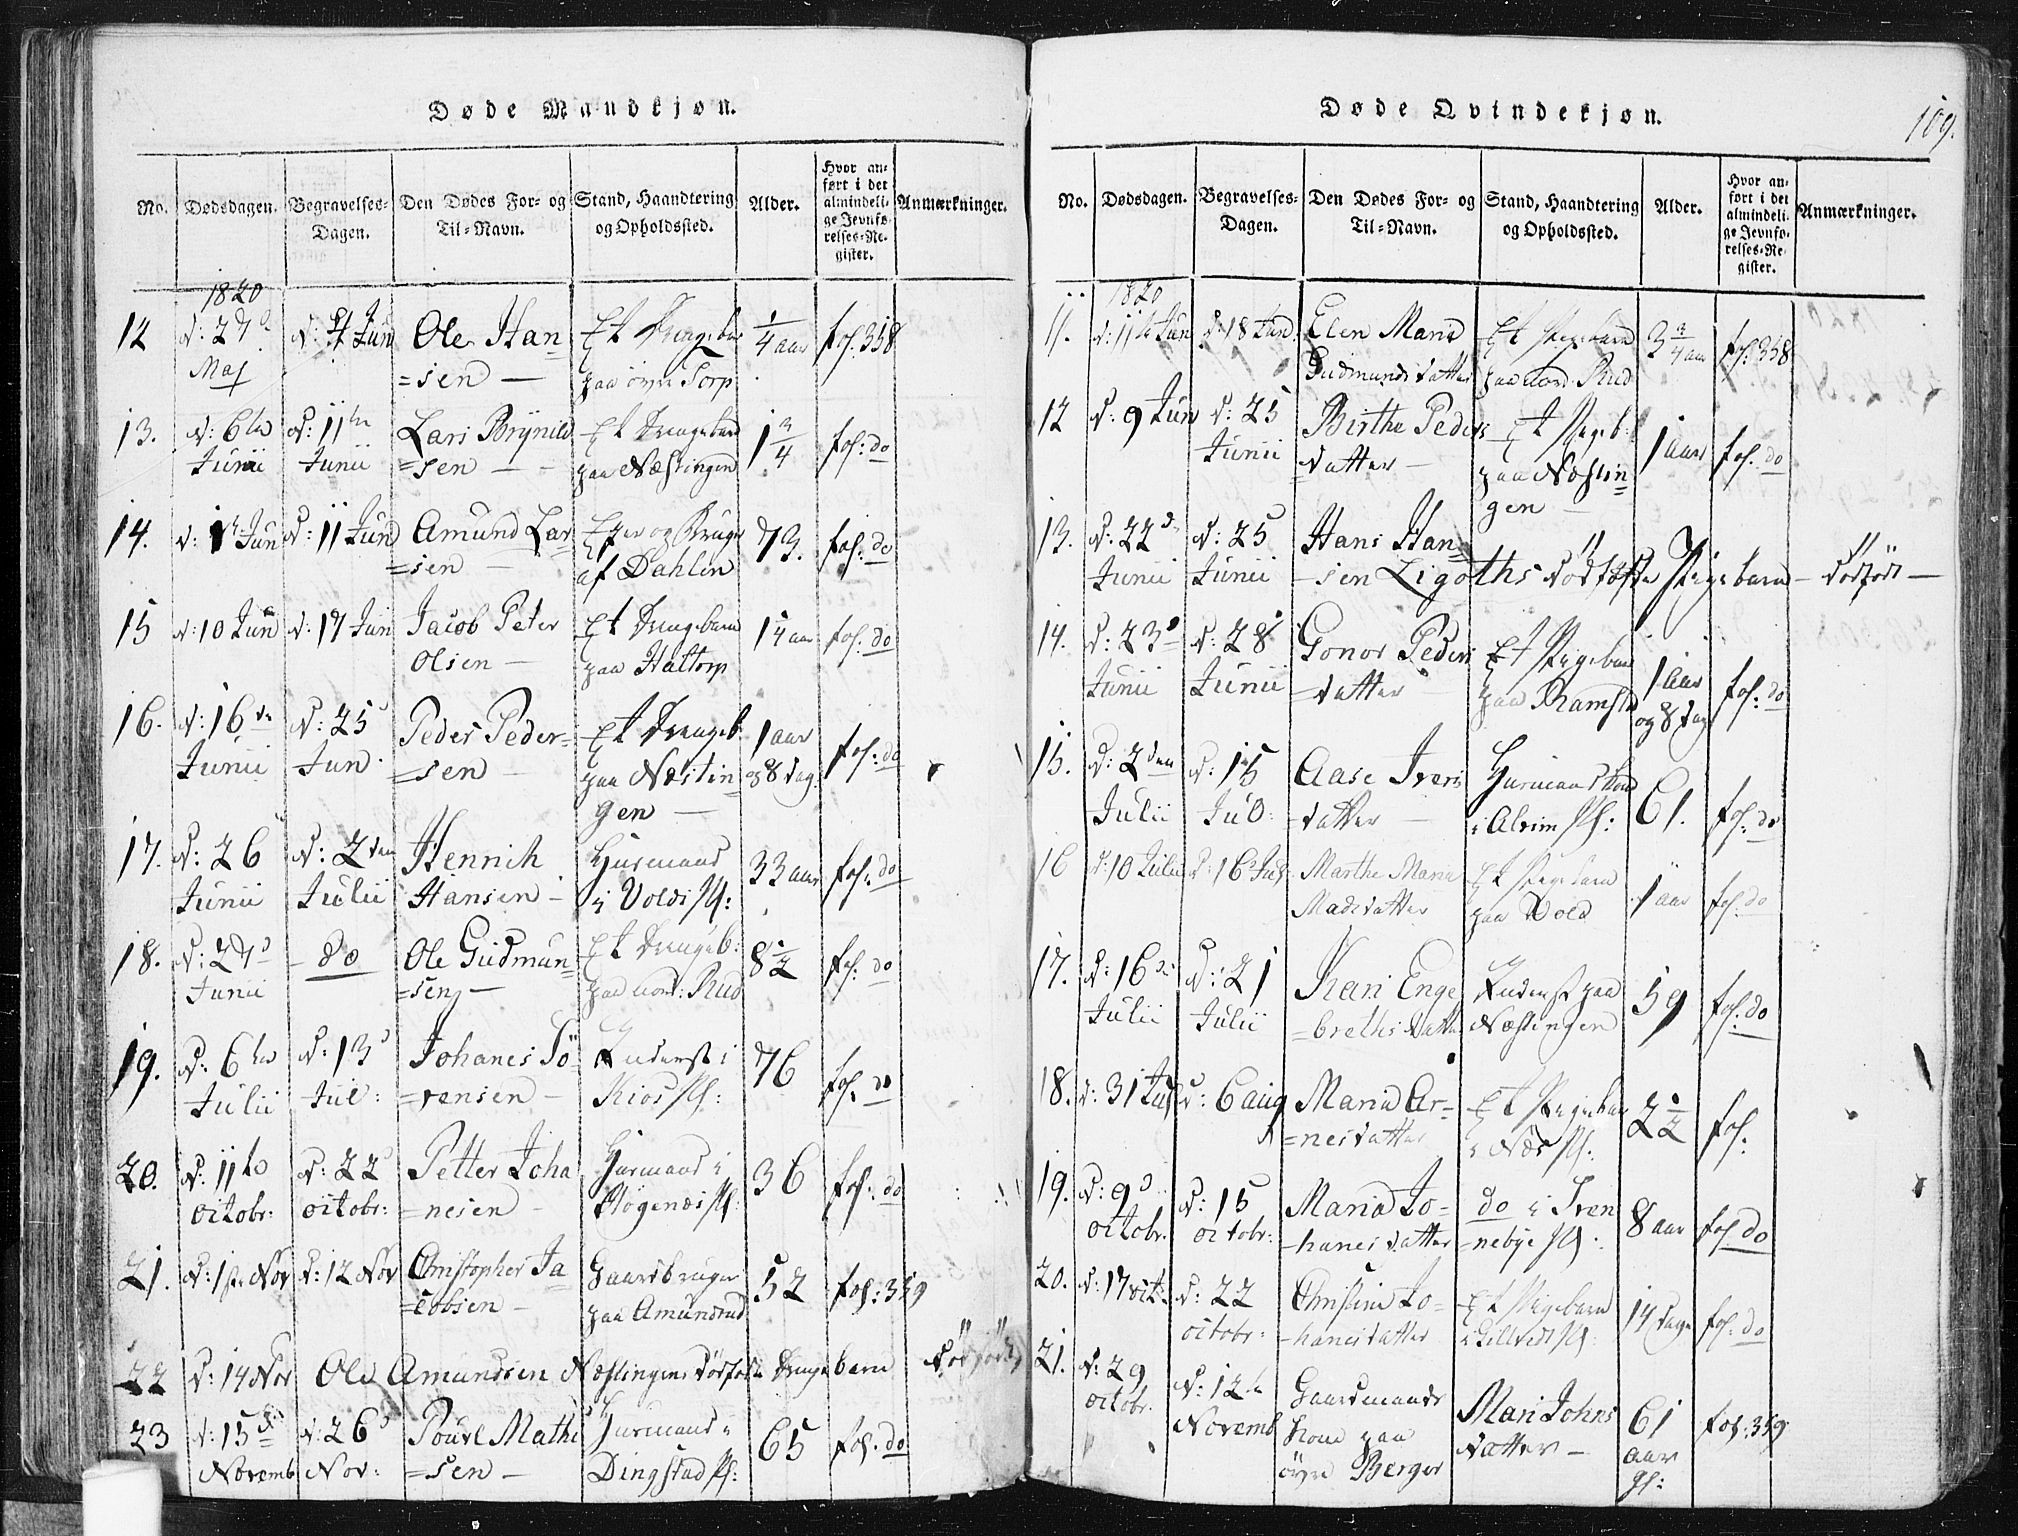 Døde Mandkjøn.
No. Dødsdagen. Begravelses-Dagen. Den Dødes For- og Til-Navn. Stand, Haandtering og Opholdssted. Alder. Hvor anført i det almindelige Jevnførelses-Register. Anmærkninger.
1820
12 d: 27d Maj d: 4 Jun Ole Han=
=sen — Et Drengebar paa øvre Torp 1/4 aar fol. 358
13. d: 6te Junii d: 11te Junii Lars Brynild
=sen — Et Drengebarn paa Næstingen 1 3/4 fol: do
14. d: Jun d: 11 Jun Amund Lar
=sen — og Bruger af Dahlen 73. fol: do
15 d: 10 Jun d: 17 Jun Jacob Peter
Olsen — Et Drengebarn paa Haltorp 14 aar fol: do
16. d: 16de Junii d: 25 Jun. Peder Peder=
=sen — Et Drengeb. paa Næstin=
gen — 1 aar og 8 dag. fol: do
17. d: 26 Junii d: 2den Julii Hennich
Hansen — Huusmand i Volds 33 aar fol: do
18. d: 27d Junii do Ole Gudmun=
=sen — Et Drengeb: paa nord: Rud 8 1/2 fol: do
19. d: 6te Julii d: 13d Jul: Johanes Sö=
=rensen — Inderst i Kios 76 fol. do
20. d: 11te octobr: d: 22d octobr: Petter Joha
=nesen — Huusmand i Høgenæs 36 fol: do
21. d: 1ste Nov d: 12 Nov Christopher Ja
=cobsen — Gaardbruger paa Amundrud 52 fol: 359
22 d: 14 Nov Ole Amundsen Næstingens dödfødte Drengebarn dödfödt
23 d: 15de Novemb d: 26d Nov: Pouel Mathi
=sen — Huusmand i Dingstad 65 fol. do
Døde Qvindekjøn.
109.
No. Dødsdagen. Begravelses-Dagen. Den Dødes For- og Til-Navn. Stand, Haandtering og Opholdssted. Alder. Hvor anført i det almindelige Jevnførelses-Register. Anmærkninger.
1820
11. d: 11te Jun d: 18 Jun: Elen Maria
Gudmundsdatter Et Pigebarn paa nord. Rud 3 3/4 aar fol: 358
12 d. 9 Jun d: 25 Junii Birthe Peders
=datter — Et Pigeb: paa Næstin=
gen — 1 aar fol. do
13. d: 22d Junii d: 25 Junii Hans Han=
=sen Ligoths dödfødte Pigebarn — dödfödt —
14. d: 23d Junii d: 28 Junii Gonor Peders
=datter — Et Pigebarn paa Ramstad 1 aar og 8 dag fol: do
15. d: 2den Julii d: 15 Jul: Aase Ivers
=datter — Huusmandskone i Alrim 61. fol: do
16 d: 10 Julii d: 16 Jul Marthe Maria
Madsdatter Et Pigebarn paa Vold 1 aar fol: do
17. d: 16de Julii d: 21 Julii Kari Enge
=brethsdatter Inderst paa Næstingen 59 fol: do
18. d: 31 Jul d: 6 aug Maria Ar=
=nesdatter Et Pigebarn i Næs 2 1/2 fol:
19. d: 9d octobr. d: 15 octobr: Maria Jo=
=hanesdatter do i Tren
=nebye 8 aar fol. do
20. d: 17 oct: d: 22 octobr: Christine Jo=
=hanesdatter Et Pigebarn i 14 dage fol: do
21. d: 29 octobr. d: 12te Novemb Gaardmands
Kone paa
øvre Berger Mari Johns
datter — 61 aar fol: 359